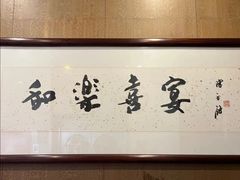 和樂喜宴